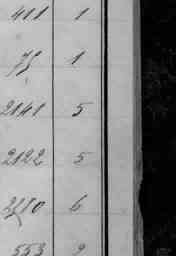 411 1
75 1
2141 5
2122 5
6
553 9